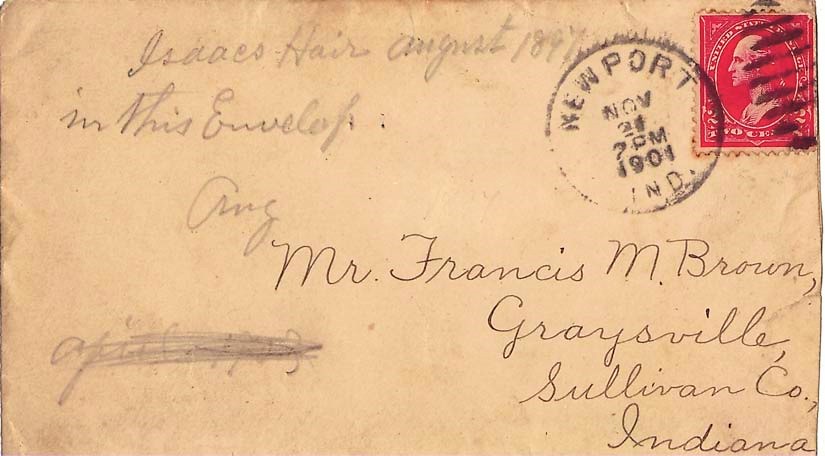 Isaacs Hair august 1897
in this Envelop.
Aug
NEWPORT
NOV
21
7 PM
1901
IND.
UNITED STATES
TWO CE
Mr. Francis M. Brown,
Graysville,
Sullivan Co.,
Indiana